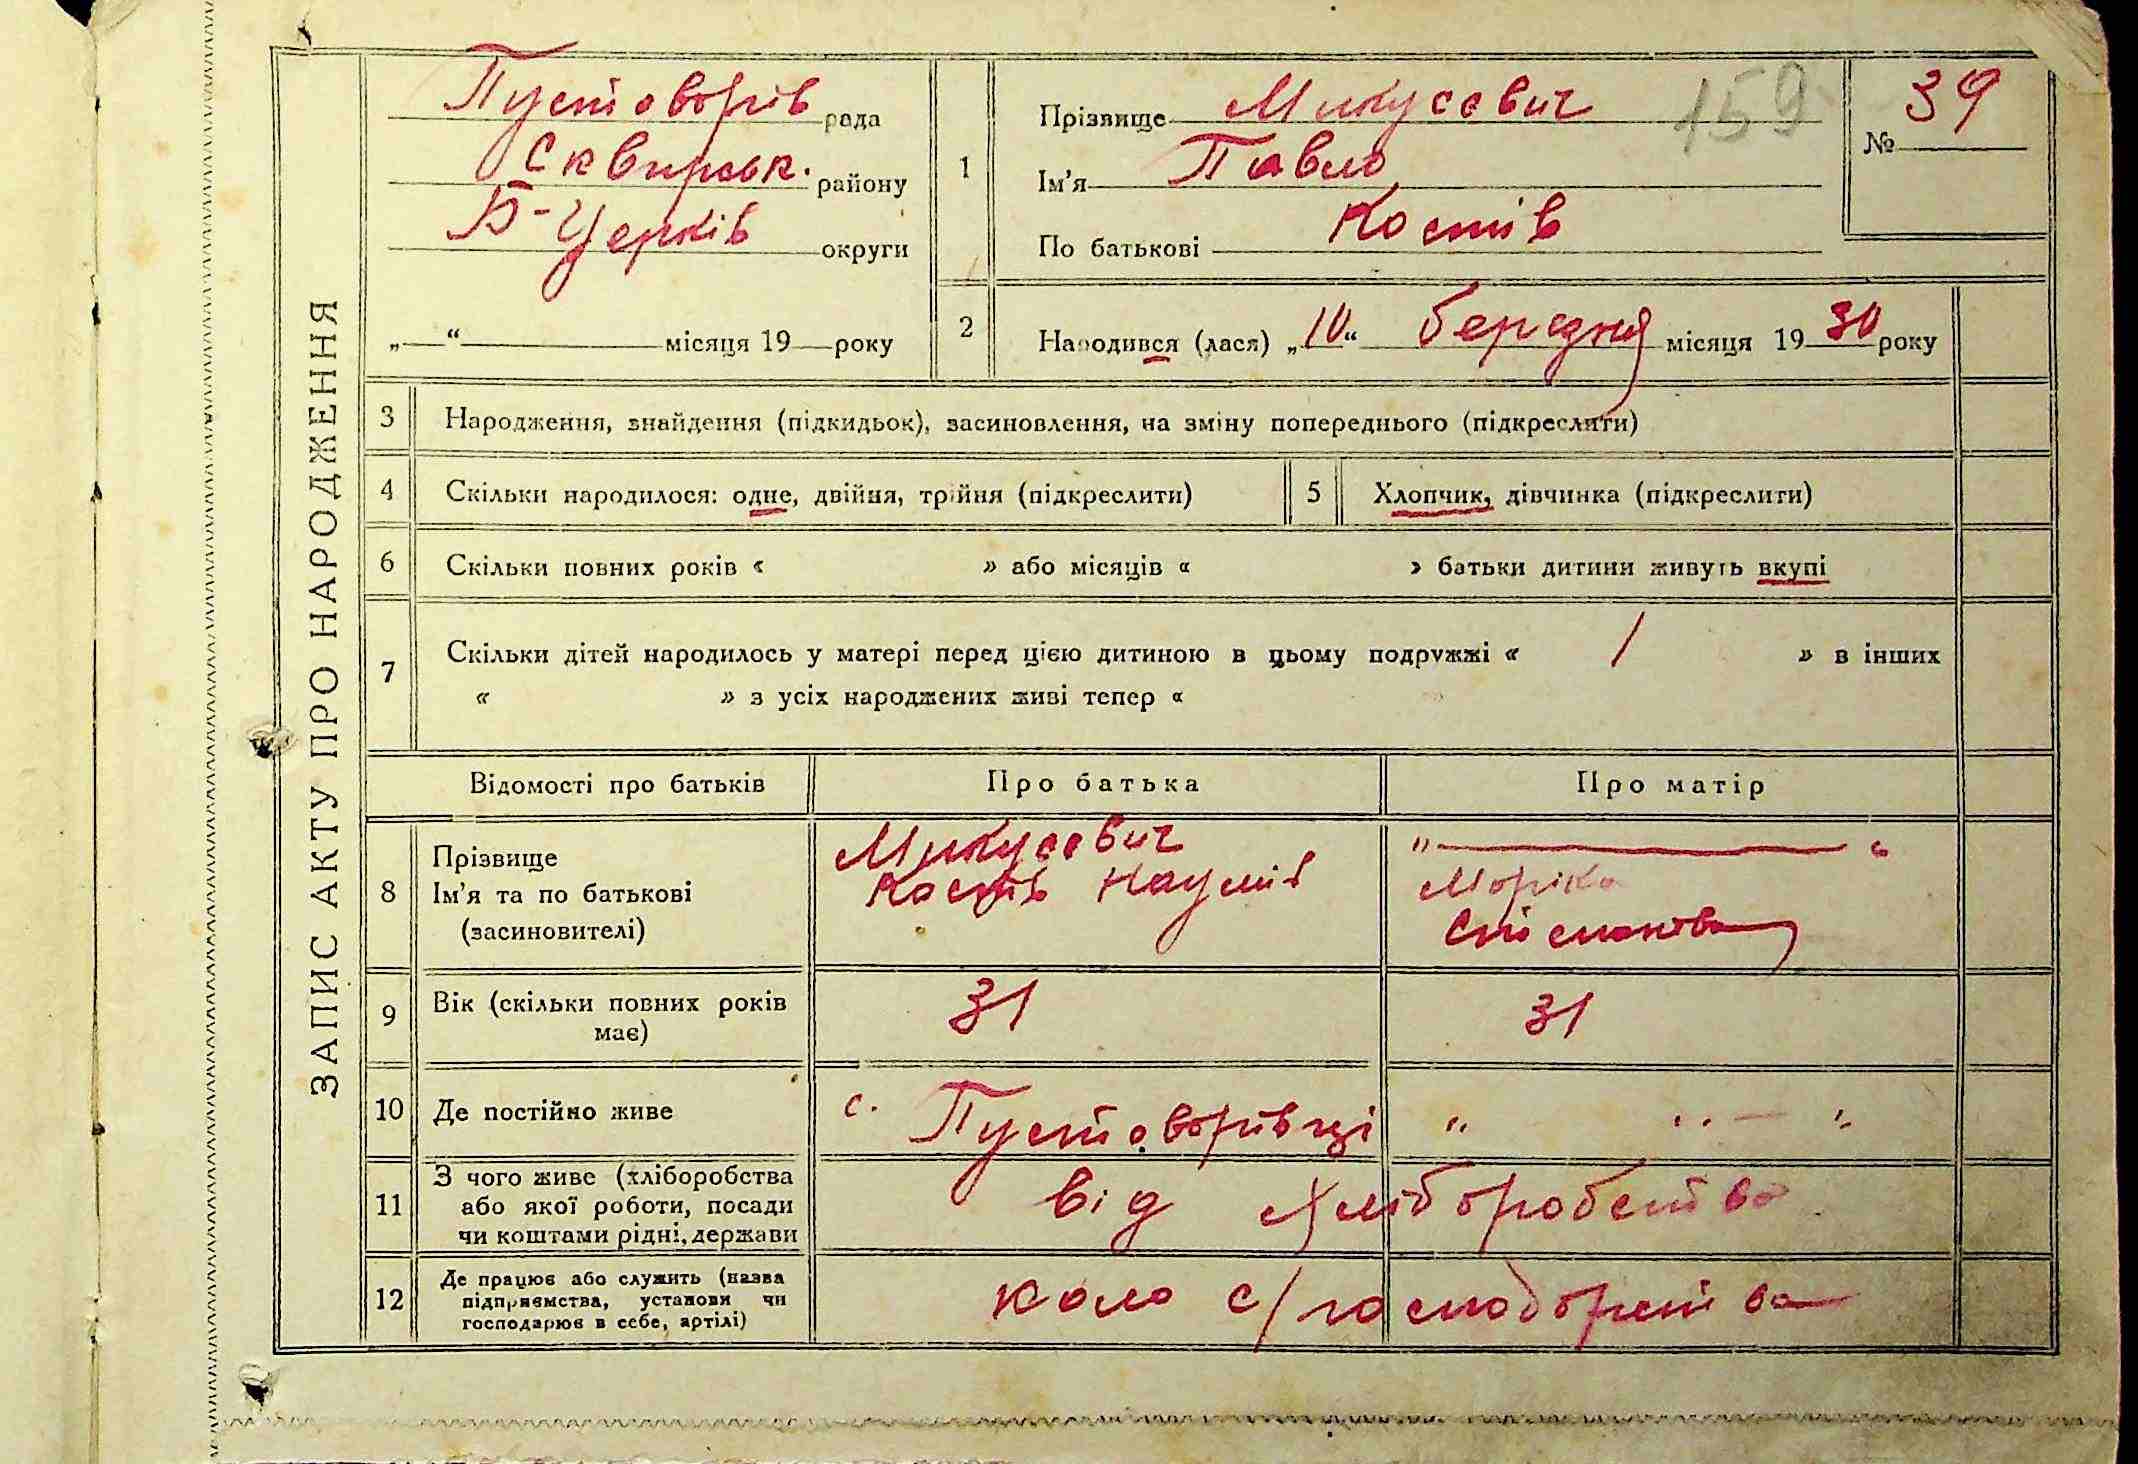 ЗАПИС АКТУ ПРО НАРОДЖЕННЯ
Пустоворів рада
Сквирськ. району
Б-Церків округи
„—“ — місяця 19 — року
1
Прізвище Микусевич
159
Ім'я Павло
По батькові Костів
№ 39
2
Народився (лася) „10“ березня місяця 1930 року
3 Народження, знайдення (підкидьок), засиновлення, на зміну попереднього (підкреслити)
4 Скільки народилося: одне, двійня, трійня (підкреслити)
5 Хлопчик, дівчинка (підкреслити)
6 Скільки повних років « » або місяців « » батьки дитини живуть вкупі
7 Скільки дітей народилось у матері перед цією дитиною в цьому подружжі « 1 » в інших
« » з усіх народжених живі тепер «
Відомості про батьків Про батька Про матір
8
Прізвище
Ім'я та по батькові
(засиновителі)
Микусевич
Костів Наумів
„ — “
Моріка
9 Вік (скільки повних років
має)
31 31
10 Де постійно живе с. Пустоворівці „ — “
11
З чого живе (хліборобства
або якої роботи, посади
чи коштами рідні, держави
від хліборобства
12
Де працює або служить (назва
підприємства, установи чи
господарює в себе, артілі)
коло с/господорства